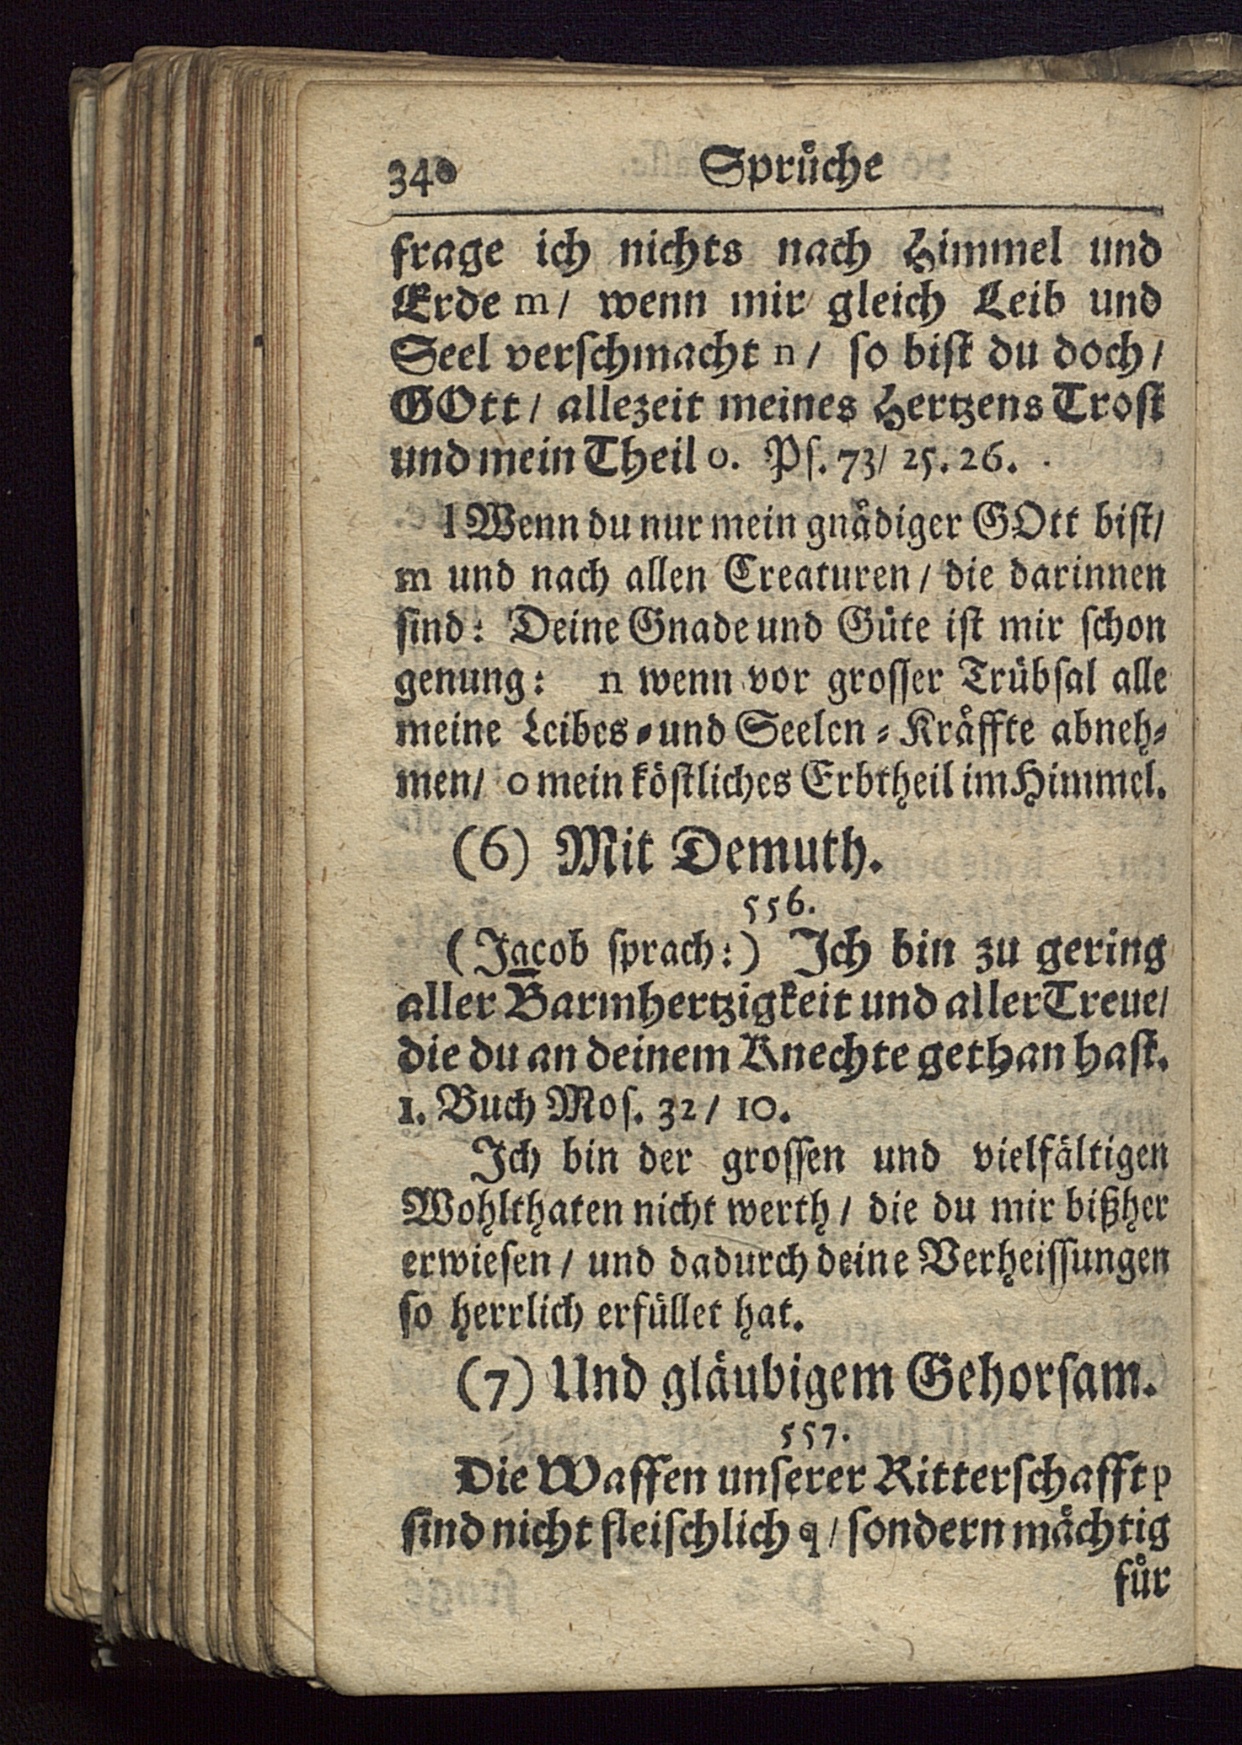 340 Sprůche
frage ich nichts nach Himmel und
Erde m/ wenn mir gleich Leib und
Seel verschmacht n/ so bist du doch/
GOtt/ allezeit meines Hertzens Trost
und mein Theil o. Ps. 73/ 25. 26.
l Wenn du nur mein gnådiger GOtt bist/
m und nach allen Creaturen/ die darinnen
sind: Deine Gnade und Güte ist mir schon
genung: n wenn vor grosser Trübsal alle
meine Leibes- und Seelen-Kråffte abneh-
men/ o mein köstliches Erbtheil im Himmel.
(6) Mit Demuth.
556.
(Jacob sprach:) Ich bin zu gering
aller Barmhertzigkeit und aller Treue/
die du an deinem Knechte gethan hast.
1. Buch Mos. 32/ 10.
Ich bin der grossen und vielfältigen
Wohlthaten nicht werth/ die du mir bißher
erwiesen/ und dadurch deine Verheissungen
so herrlich erfüllet hat.
(7) Und gläubigem Gehorsam.
557.
Die Waffen unserer Ritterschafft p
sind nicht fleischlich q/ sondern måchtig
fůr